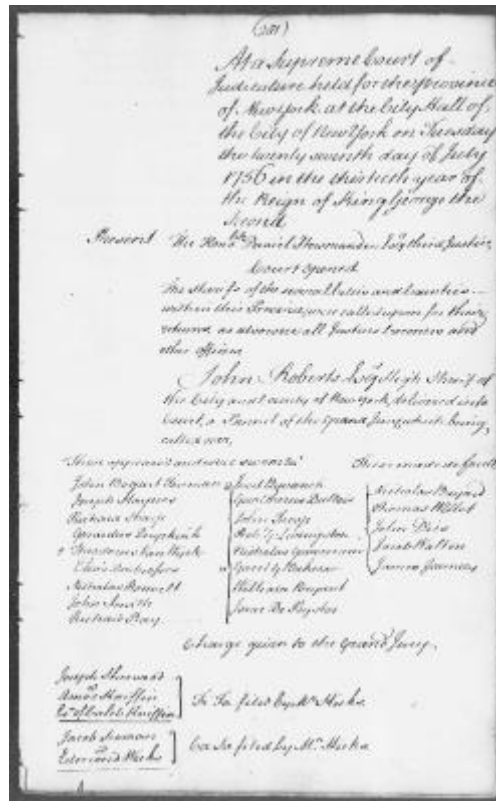 At a Supreme Court of
Judicature held for the Province
of New York at the City Hall of
the City of New York on Tuesday
the twenty seventh day of July
1756 in the thirtieth year of
the Reign of King George the
Second
Present The Honble Daniel Horsmanden Esqr third Justice
Court opened
The Sherifs of the several Cities and Counties
within this Province were called upon for their
returns as also were all Justices Coroners and
other officers
John Roberts Esqr High Sherif of
the City and County of New York delivered into
Court a Pannel of the Grand Jury which being
called over
There appeared and were sworn
These made default
John Bogart Foreman
Joseph Haynes
Richard Sharp
Theodorus Van Wyck
Nicholas Roosevelt
John Smith
Richard Ray
John Troup
Robt G Livingston
Nicholas Gouverneur
William Bayard
Isaac De Peyster
Nicholas Bayard
Thomas Willet
John Dies
Jacob Walton
James Jauncey
Charge given to the Grand Jury
Joseph Sherwood
agt
Amos
Fi Fa filed by Mr Hicks
Jacob
agt
Edmund Weeks
Ca Sa filed by Mr Hicks